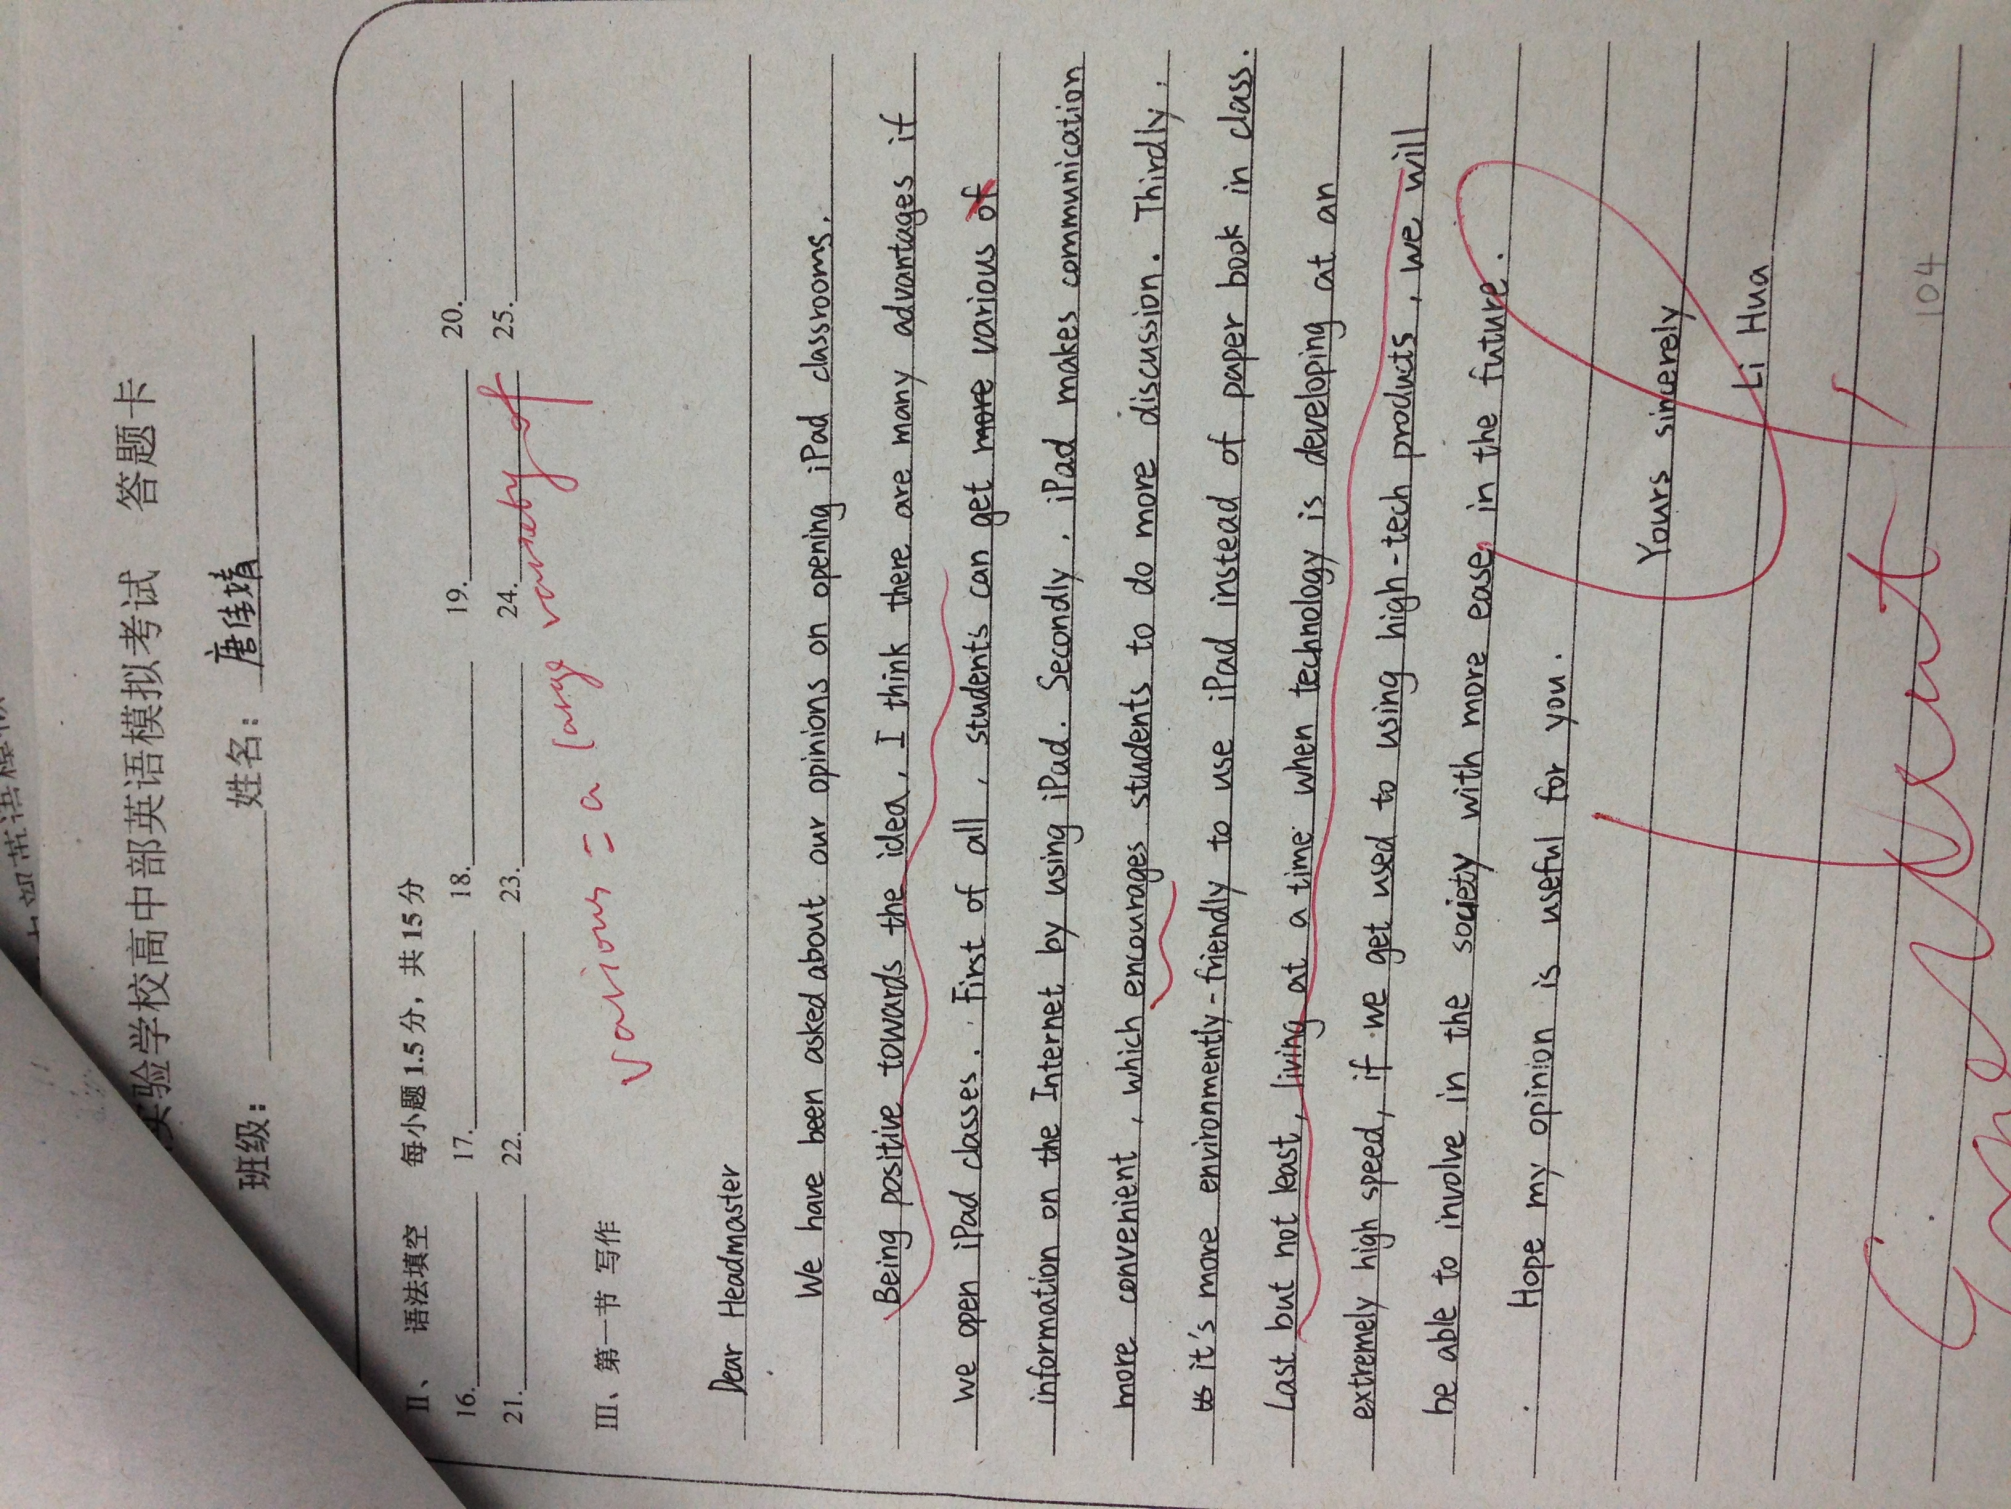 实验学校高中部英语模拟考试 答题卡
班级： 姓名：唐佳婧
II、 语法填空 每小题 1.5 分，共 15 分
16. 17. 18. 19. 20.
21. 22. 23. 24. 25.
various = a large variety of
III、第一节 写作
Dear Headmaster
We have been asked about our opinions on opening iPad classrooms.
Being positive towards the idea, I think there are many advantages if
we open iPad classes. First of all, students can get more various of
information on the Internet by using iPad. Secondly, iPad makes communication
more convenient, which encourages students to do more discussion. Thirdly,
it's more environmently-friendly to use iPad instead of paper book in class.
Last but not least, living at a time when technology is developing at an
extremely high speed, if we get used to using high-tech products, we will
be able to involve in the society with more ease in the future.
Hope my opinion is useful for you.
Yours sincerely
Li Hua
104